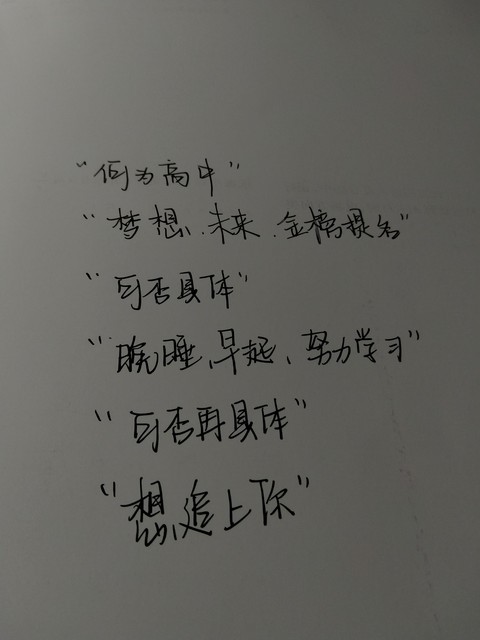 “何为高中”
“梦想.未来.金榜提名”
“可否具体”
“晚睡、早起、努力学习”
“可否再具体”
“想追上你”